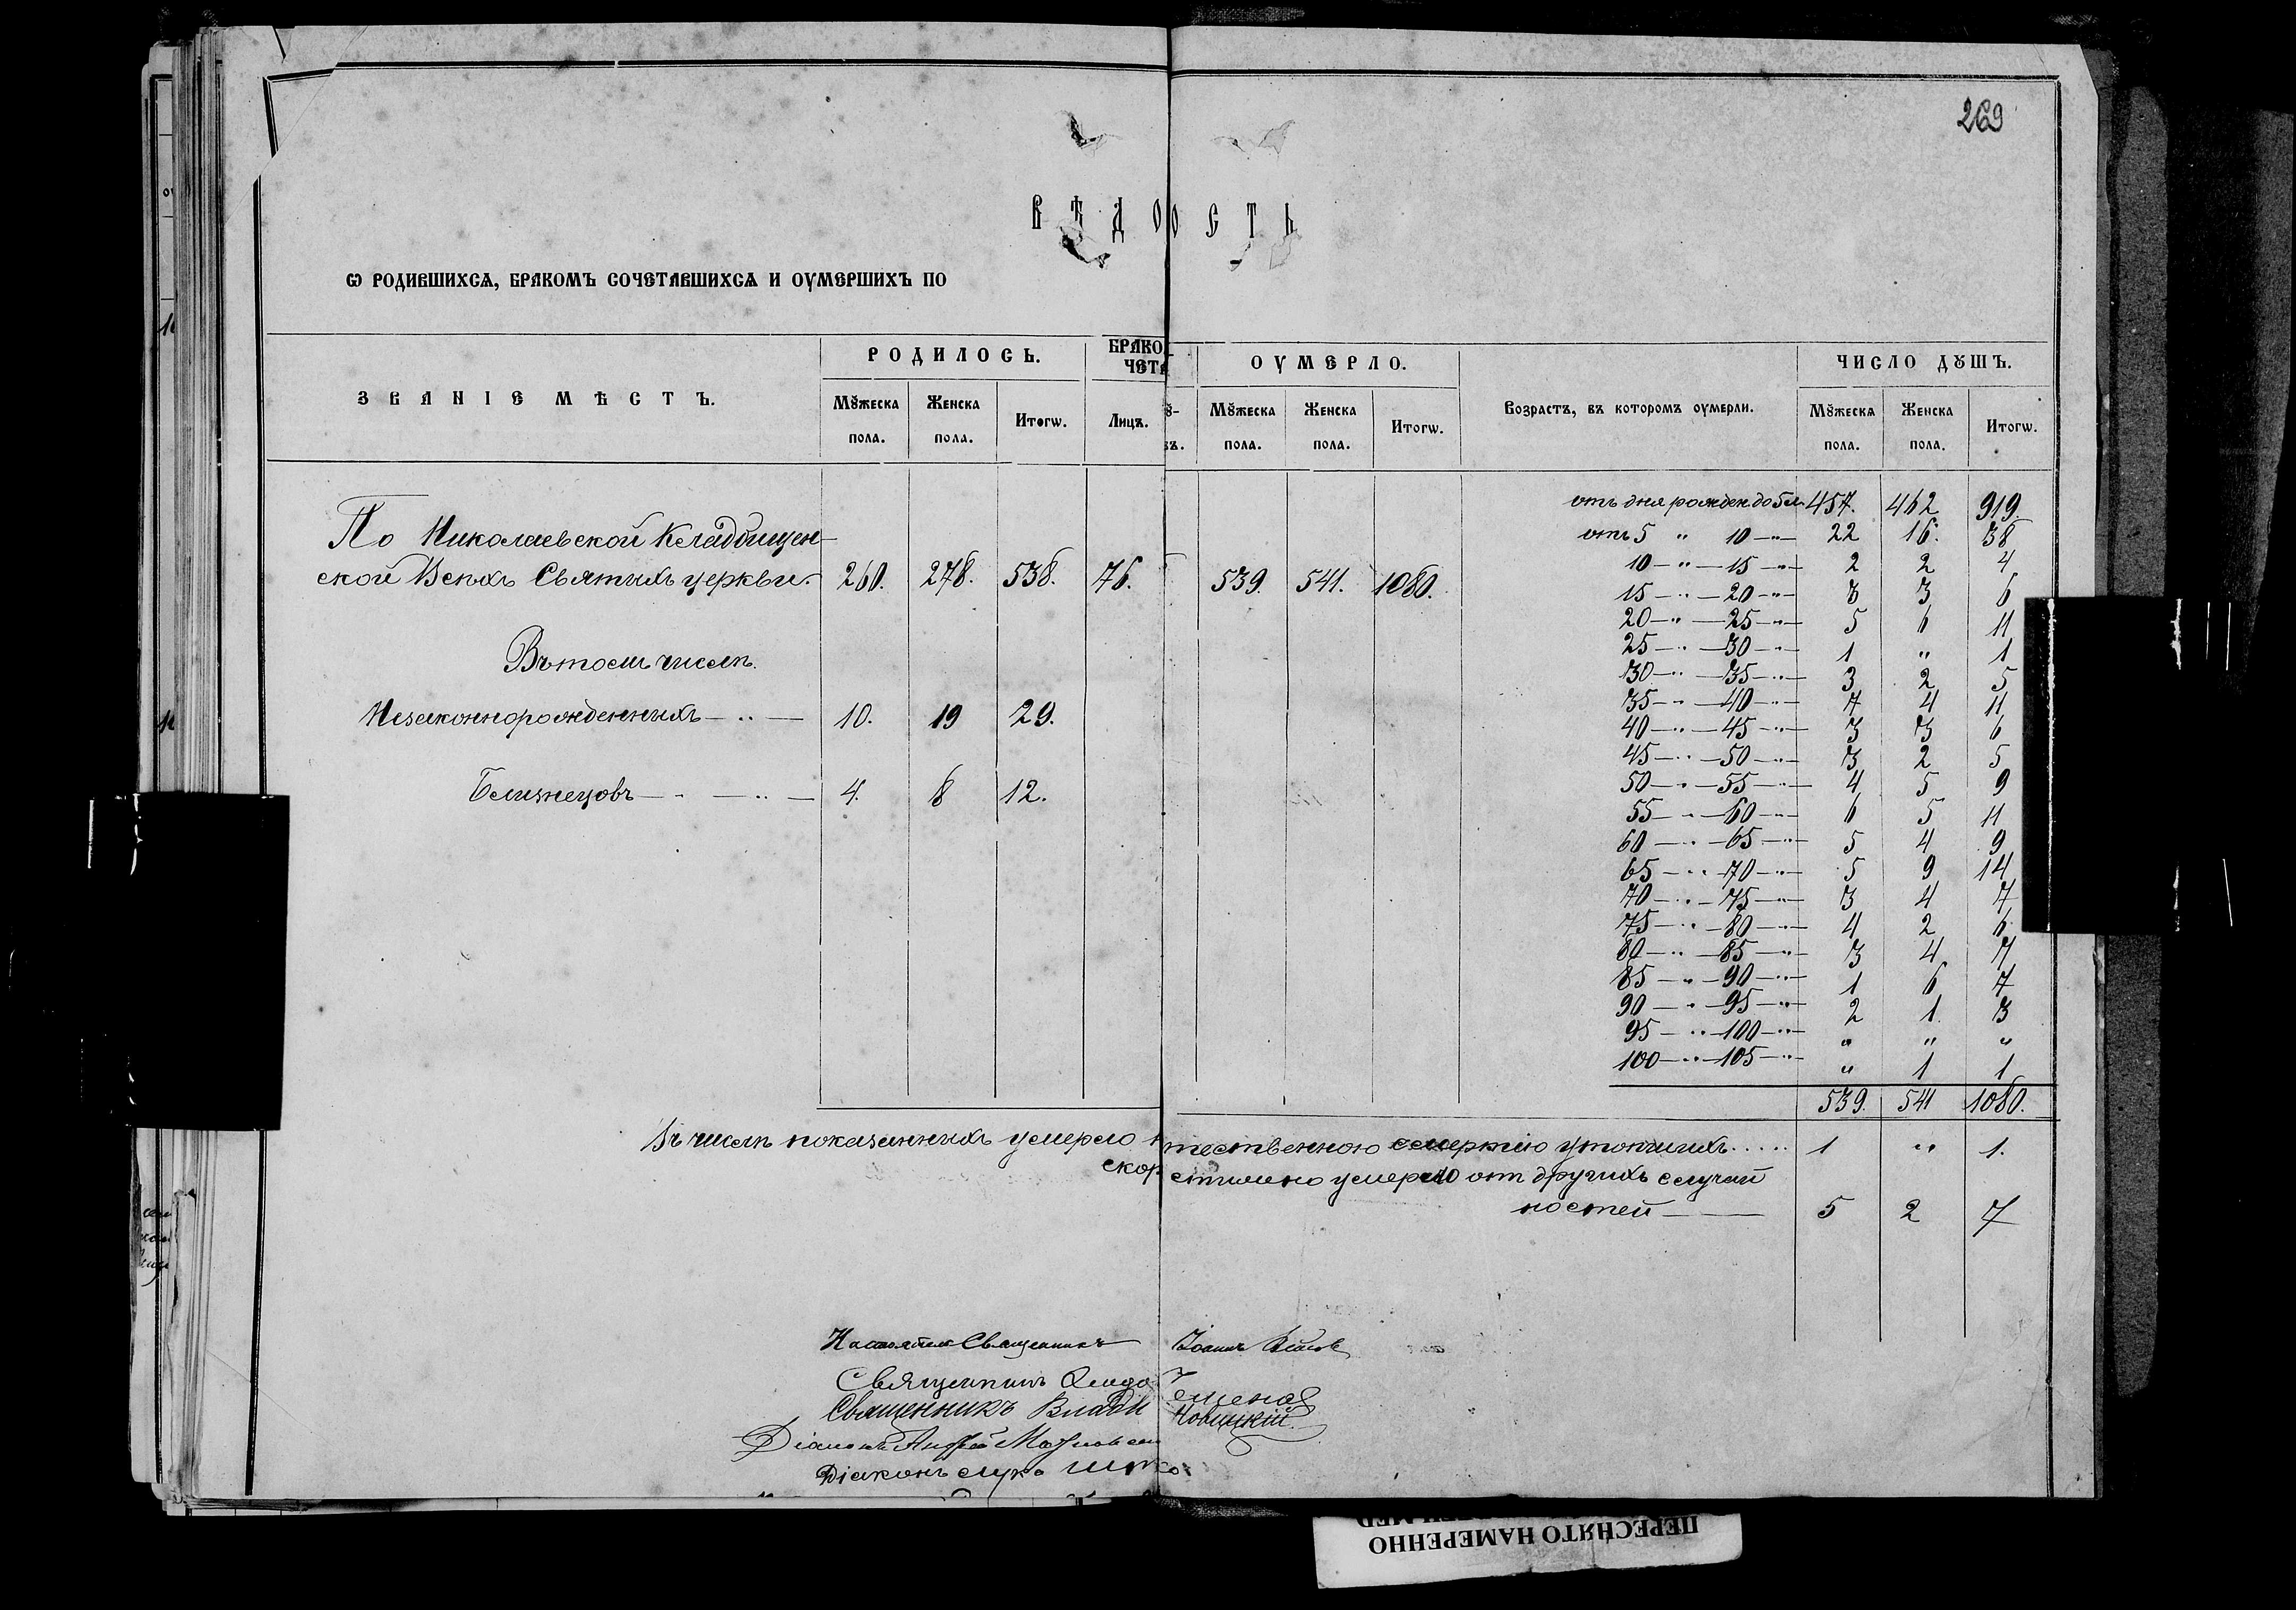 269
ВѢДО ОСТЬ
Ѡ РОДИВШИХСѦ, БРАКОМЪ СОЧЕТАВШИХСѦ И ОУМЕРШИХЪ ПО
ЗВАНІЕ МѢСТЪ.
РОДИЛОСЬ.
Мꙋжеска пола.
Женска пола.
Итогѡ.
БРАКО
ЧЕТА
Лицъ.
По Николаевской Кладбищен-
ской Всѣхъ Святыхъ церкви.
260. 278. 538. 76.
Въ томъ числѣ
Незаконнорожденныхъ — „ — 10. 19 29.
Близнецовъ — „ — „ — 4. 8 12.
ОУМЕРЛО.
Мꙋжеска пола.
Женска пола.
Итогѡ.
539. 541. 1080.
Возрастъ, въ которомъ оумерли.
ЧИСЛО ДꙊШЪ.
Мꙋжеска пола.
Женска пола.
Итогѡ.
отъ дня рожден до 5 л. 457. 462 919.
отъ 5 „ 10 — „ — 22 16. 38
10 — „ — 15 — „ — 2 2 4
15 — „ — 20 — „ — 3 3 6
20 — „ — 25 — „ — 5 6 11
25 — „ — 30 — „ — 1 „ 1
30 — „ — 35 — „ — 3 2 5
35 — „ — 40 — „ — 7 4 11
40 — „ — 45 — „ — 3 3 6
45 — „ — 50 — „ — 3 2 5
50 — „ — 55 — „ — 4 5 9
55 — „ — 60 — „ — 6 5 11
60 — „ — 65 — „ — 5 4 9
65 — „ — 70 — „ — 5 9 14
70 — „ — 75 — „ — 3 4 7
75 — „ — 80 — „ — 4 2 6
80 — „ — 85 — „ — 3 4 7
85 — „ — 90 — „ — 1 6 7
90 — „ — 95 — „ — 2 1 3
95 — „ — 100 — „ — „ „ „
100 — „ — 105 — „ — „ 1 1
539. 541 1080.
Въ числѣ показанныхъ умерло тественною смертію утопшихъ..... 1 „ 1.
скор стижно умерло от другихъ случай
ностей — 5 2 7
Настоятель Священникъ Іоаннъ
Священникъ
Священникъ Влади Новицкій
Діаконъ Андрей
Діаконъ Лука
ПЕРЕСНЯТО НАМЕРЕННО